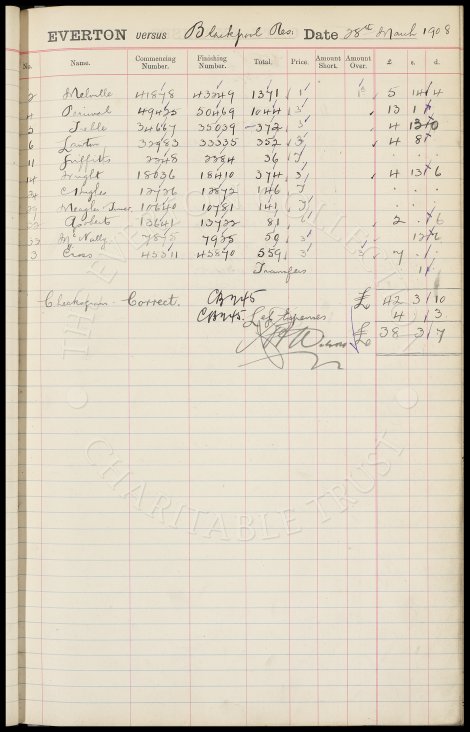 EVERTON versus Blackpool Res. Date 28th March 1908
No. Name. Commencing Number. Finishing Number. Total. Price. Amount Short. Amount Over. £ s. d.
2 Melville 41878 43249 1371 1' 5 14 4
4 Percival 49425 50469 1044 3' 13 1
5 34667 35039 372 3' 4 13 0
6 Lawton 32983 33335 352 3' 4 8
11 Griffiths 2248 2284 36 3'
14 Wright 18036 18410 374 3' 4 13 6
C Hughes 12726 12872 146 3'
10640 10781 141 3'
22 Roberts 13641 13722 81 6' 2 6
McNally 7875 7925 50 3' 12 6
3 Cross 45311 45870 559 3' 7
Transfers 1
Correct. £ 42 3 10
Expenses 4 3
£ 38 3 7
THE EVERTON COLLECTION
CHARITABLE TRUST